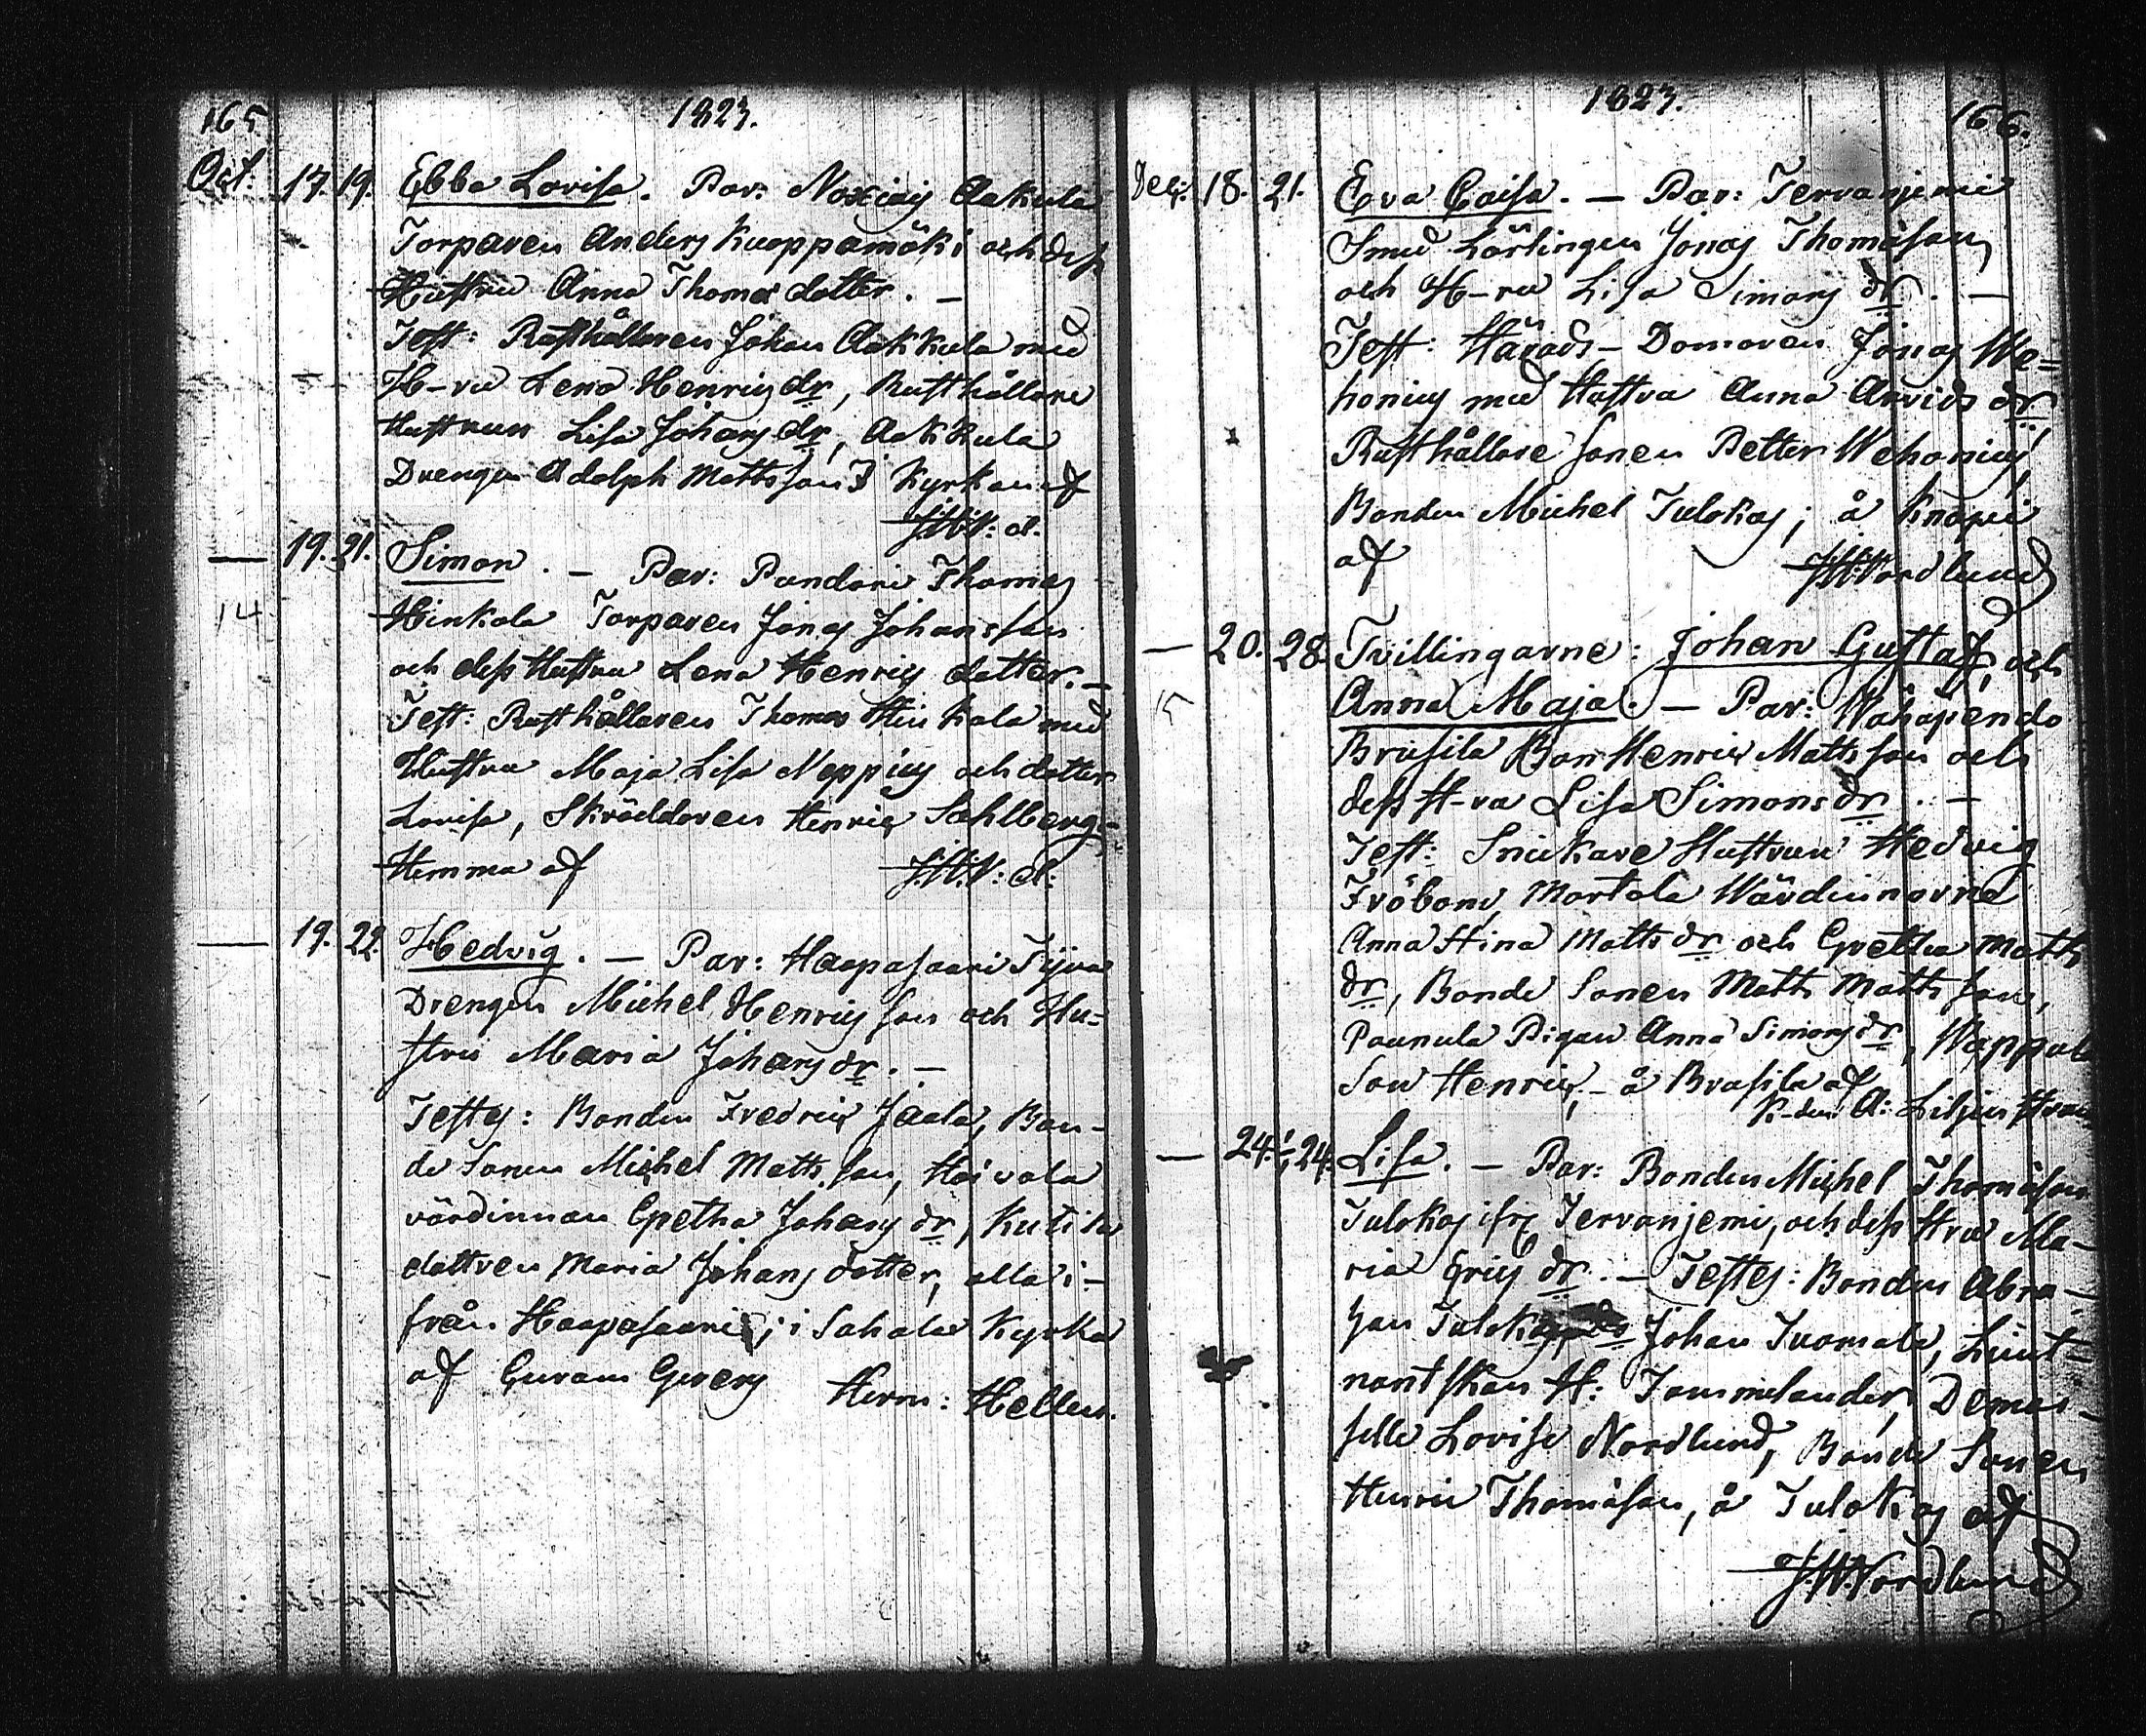 165 1823.
Oct: 17. 19. Ebba Lovisa. Par: Noxiais Aakula
Torparen Anders Kuoppamäki och dess
Hustru Anna Thomædotter. —
Test: Rusthållaren Johan Aakkula med
H-ru Lena Henrics dr, Rusthållare
Hustrun Lisa Johans dr, Aakkula
Drengen Adolph Mattsson I Kyrkan af
J.H.N: d.
— 19. 21. Simon. — Par: Pandari Thomas
14 Hinkala Torparen Jonas Johansson
och dess Hustru Lena Henrics dotter. —
Test: Rusthållaren Thomas Hinkala med
Hustru Maja Lisa Noppius och dotter
Lovisa, Skräddaren Henric Sahlberg -
Hemma af J.H.N: d:
— 19. 22. Hedvig. — Par: Haapasaari Tijva
Drengen Michel Henricsson och Hu=
stru Maria Johans dr. —
Testes: Bonden Fredric Jaala, Bon-
de Sonen Michel Matts son, Hoivala
värdinnan Gretha Johans dr, Kutika
dottren Maria Johans dotter, alla i-
från Haapasaari; i Sahalax Kyrka
af Herm: Hellen.
1823. 166.
Dec: 18. 21. Eva Caisa. — Par: Tervanjemi
Smed Lärlingen Jonas Thomasson
och H-ru Lisa Simons dr. —
Test: Härads-Domaren Jonas We=
honius med Hustru Anna Arvids dr,
Rusthållare Sonen Petter Wehonius,
Bonden Michel Tulokas; å Knapis
af J.H.Nordlund
— 20. 28. Tvillingarne: Johan Gustaf, och
15 Anna Maja. — Par: Wähäpendo
Brusila Bon Henric Mattsson och
dess H-ru Lisa Simons dr. —
Test: Snickare Hustrun Hedvig
Fröbom, Martala Wärdinnorna
Anna Stina Matts dr och Gretha Matts
dr, Bonde Sonen Matts Mattsson,
Paunula Pigan Anna Simons dr, Wappula
Son Henric, - å Brusila af
K-den A: Liljenstrand
— 24. 24. Lisa. — Par: Bonden Michel Thomasson
Tulokas ifr. Tervanjemi, och dess Hru Ma-
ria Erics dr. — Testes: Bonden Abra-
ham Tulokas, Johan Tuomala, Lieut=
nantskan H: Tammelander, Demoi-
selle Lovisa Nordlund, Bonde Sonen
Henric Thomasson, å Tulokas af
J.H.Nordlund